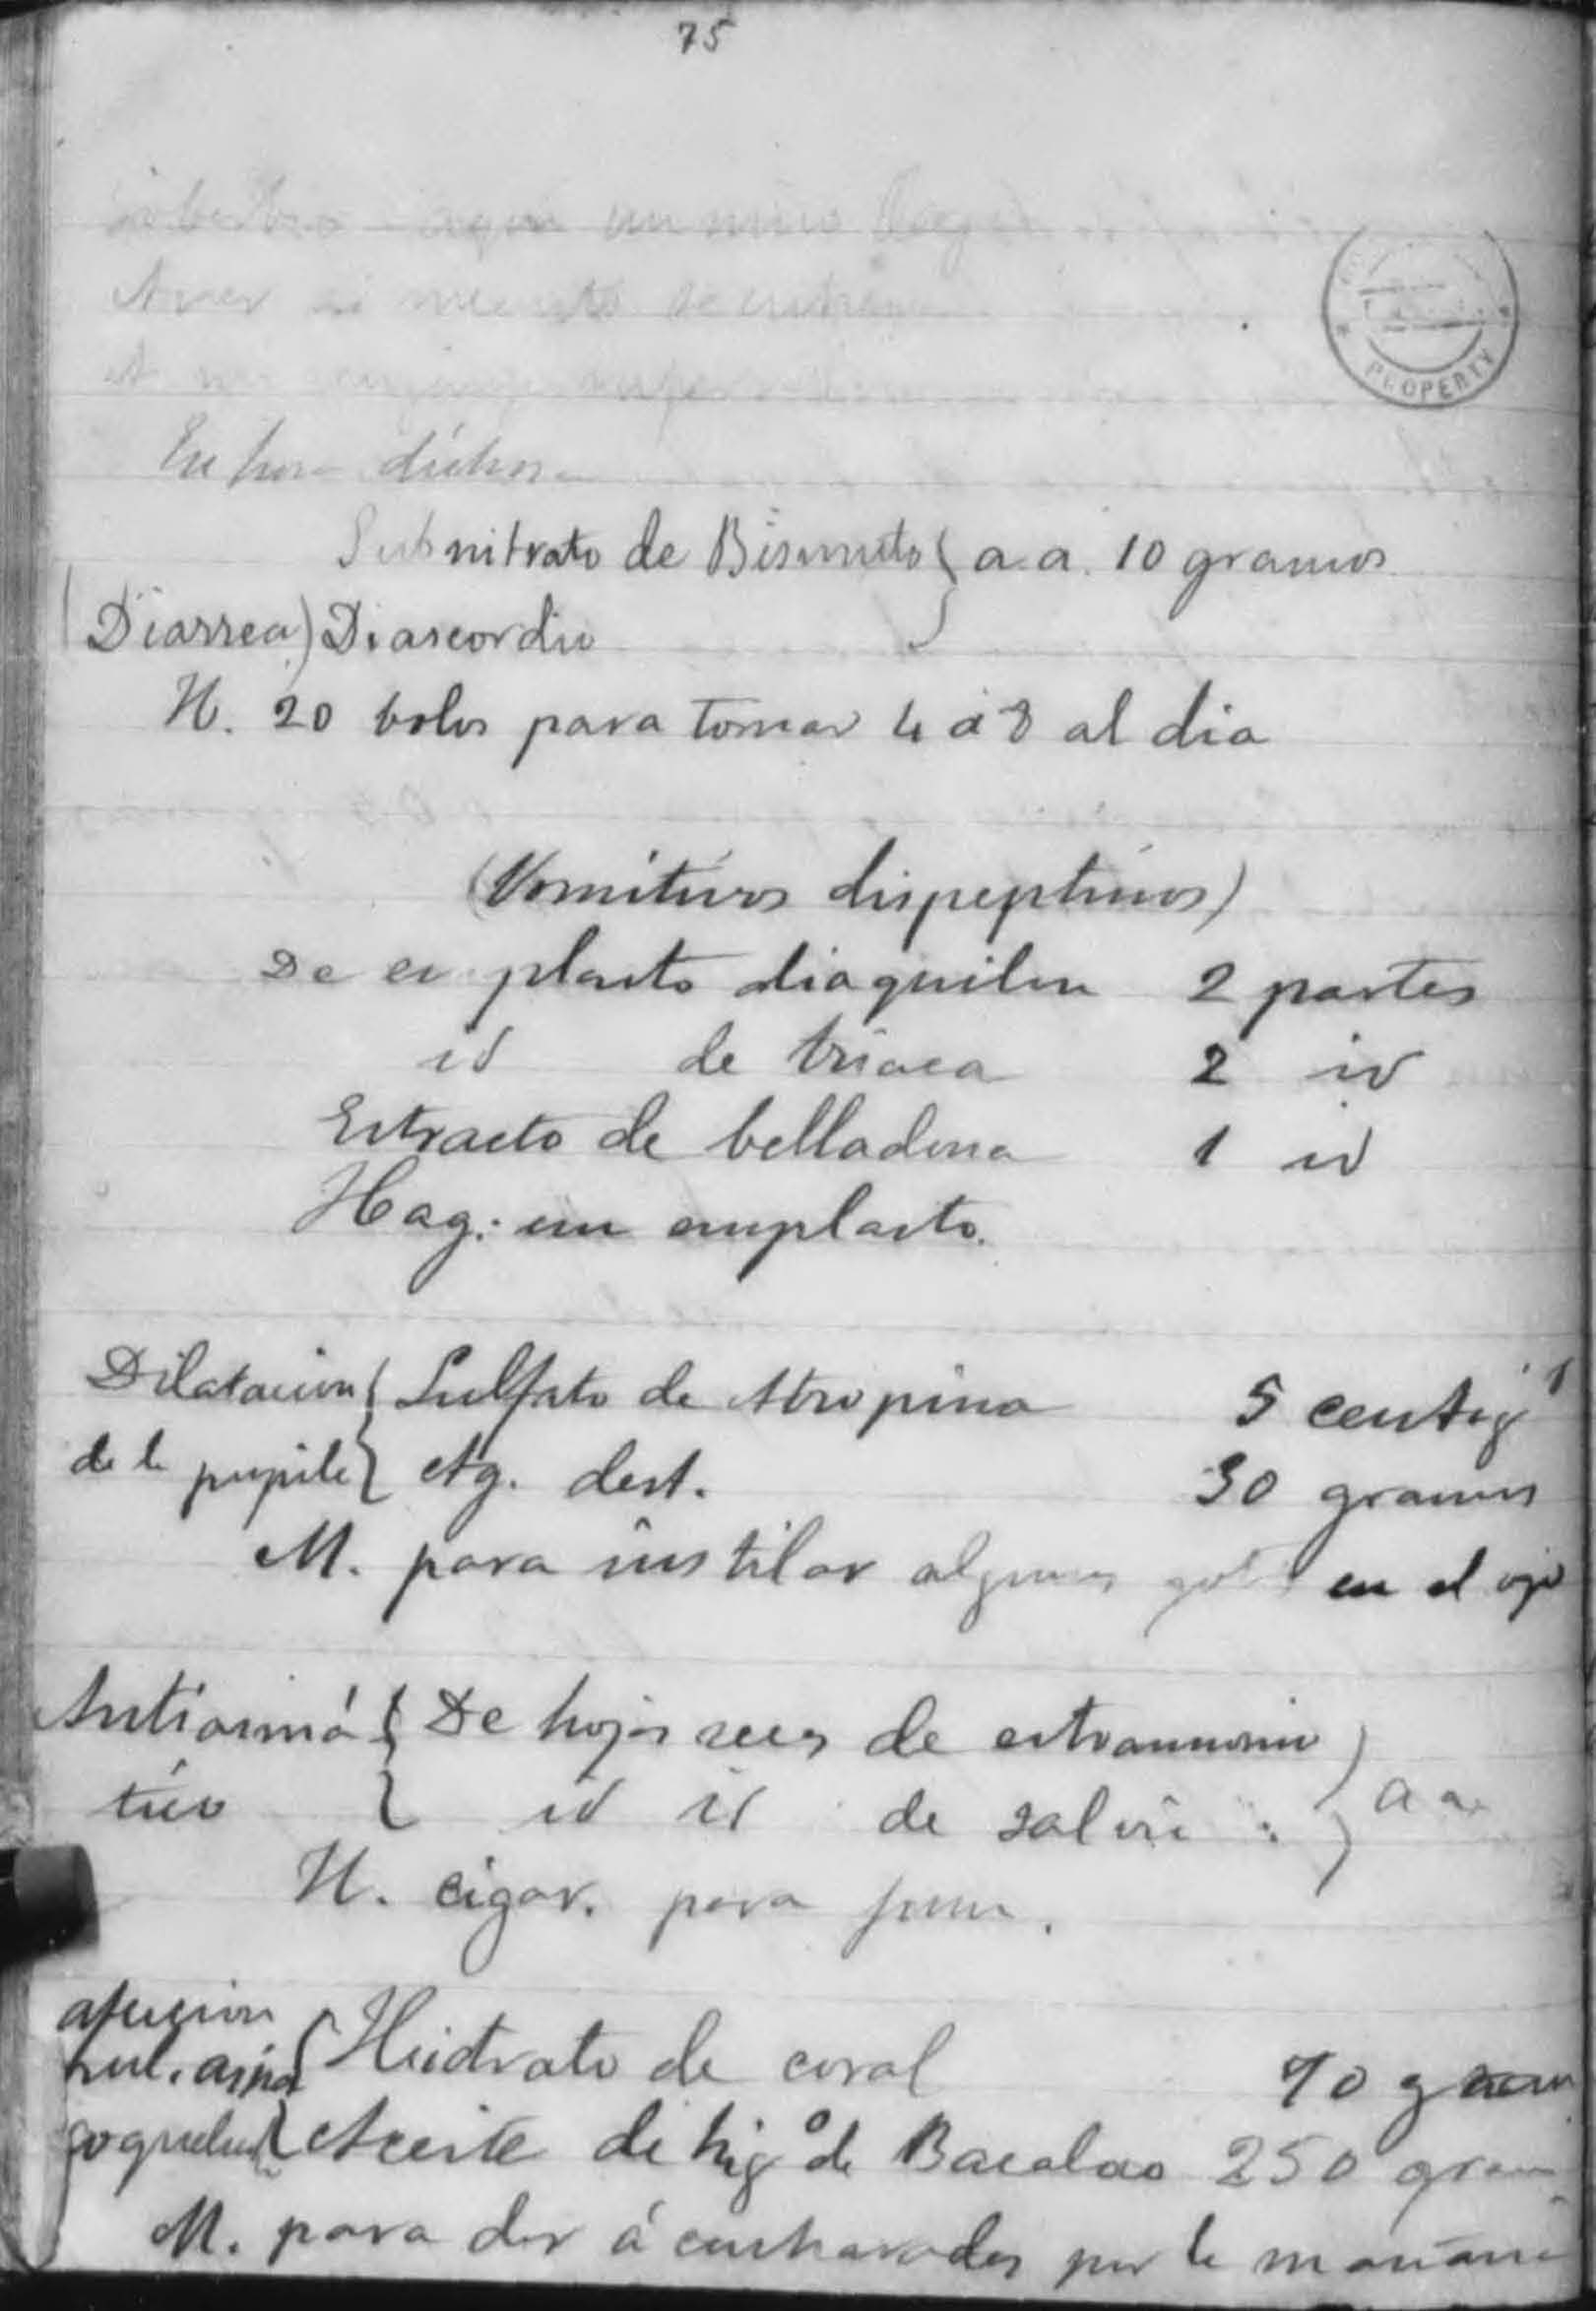 75
PROPERTY
Subnitrato de Bismuto } a.a. 10 gramos
(Diarrea) Diascordio
H. 20 bolos para tomar 4 á 8 al dia
(Vomitivos dispepticos)
De emplasto diaquilon 2 partes
id de triaca 2 id
Estracto de belladona 1 id
Hag: un emplasto.
Dilatacion { Sulfato de Atropina 5 centig
de la pupila { Ag. dest. 30 gramos
M. para instilar algunas gotas en el ojo
Antiasmá { De hojas secas de estramonio }
tico { id id de salvia } a a
H. cigar. para fumar.
afeccion
pul. asma { Heidrato de coral 10 gram
coqueluch { Aceite de hig° de Bacalao 250 gram
M. para dar á cucharadas por la mañana